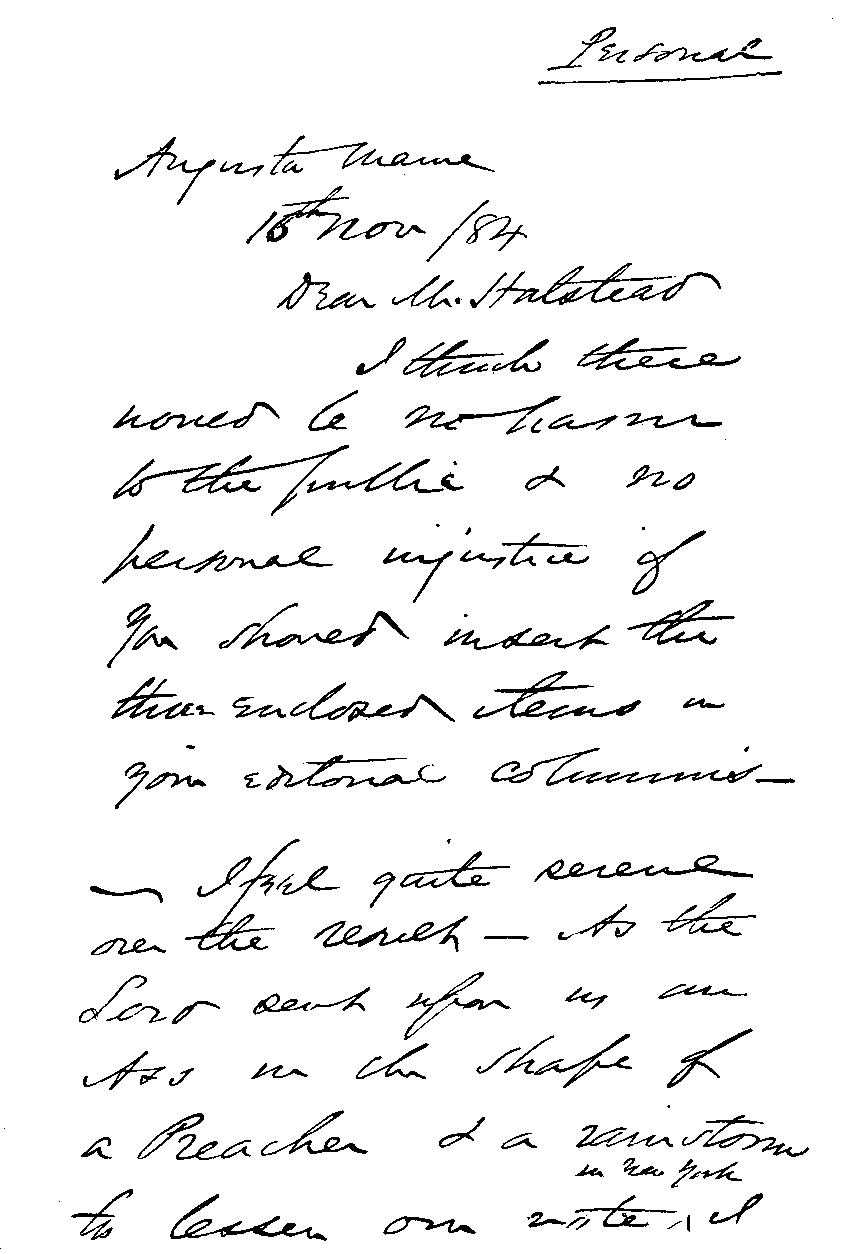 Personal
Augusta Maine
16th Nov /84
Dear Mr. Halstead
I think there
would be no harm
to the public & no
personal injustice if
you should insert the
three enclosed items in
your editorial columns—
— I feel quite serene
over the result — As the
Lord sent upon us an
Ass in the shape of
a Preacher & a rainstorm
in New York
to lessen our vote, I